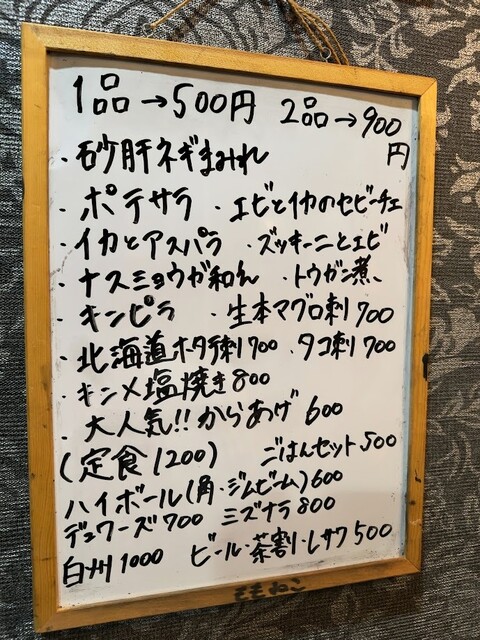 1品→500円 2品→900円
・砂肝ネギまみれ
・ポテサラ ・エビとイカのセビーチェ
・イカとアスパラ ・ズッキーニとエビ
・ナスミョウガ和え ・トウガン煮
・キンピラ ・生本マグロ刺700
・北海道ホタテ刺700 ・タコ刺700
・キンメ塩焼き800
・大人気!!からあげ 600
(定食1200) ごはんセット500
ハイボール(角・ジムビーム)600
デュワーズ700 ミズナラ800
白州1000 ビール・茶割・レサワ500